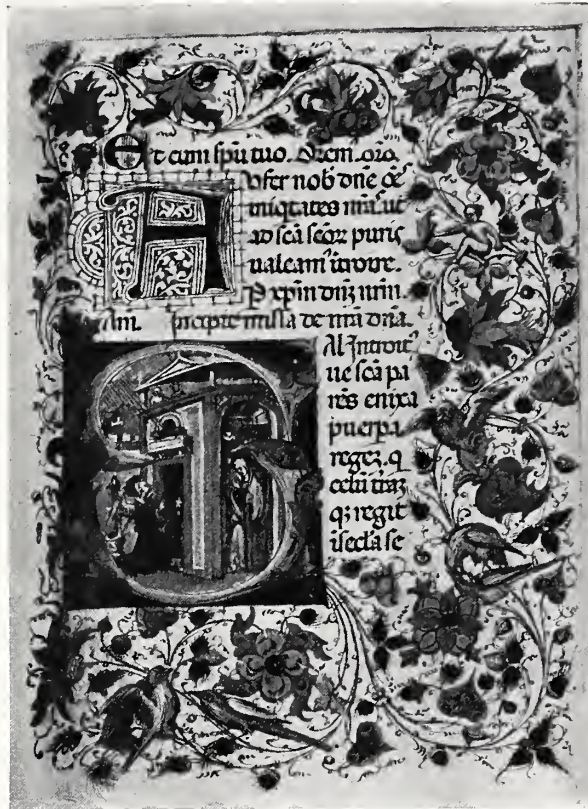 Et cum spū tuo. Orem. oro.
Aufer nob dnē qs
iniqtates nrās. ut
ad scā scōrz puris
ualeamꝰ itroire.
P xpm dnz nrm.
Am. Incipit missa de nrā dnā.
Al Introitꝰ
Salue scā pa
rēs enixa
puerpa
regez. q
celū traz
qz regit
i secla se